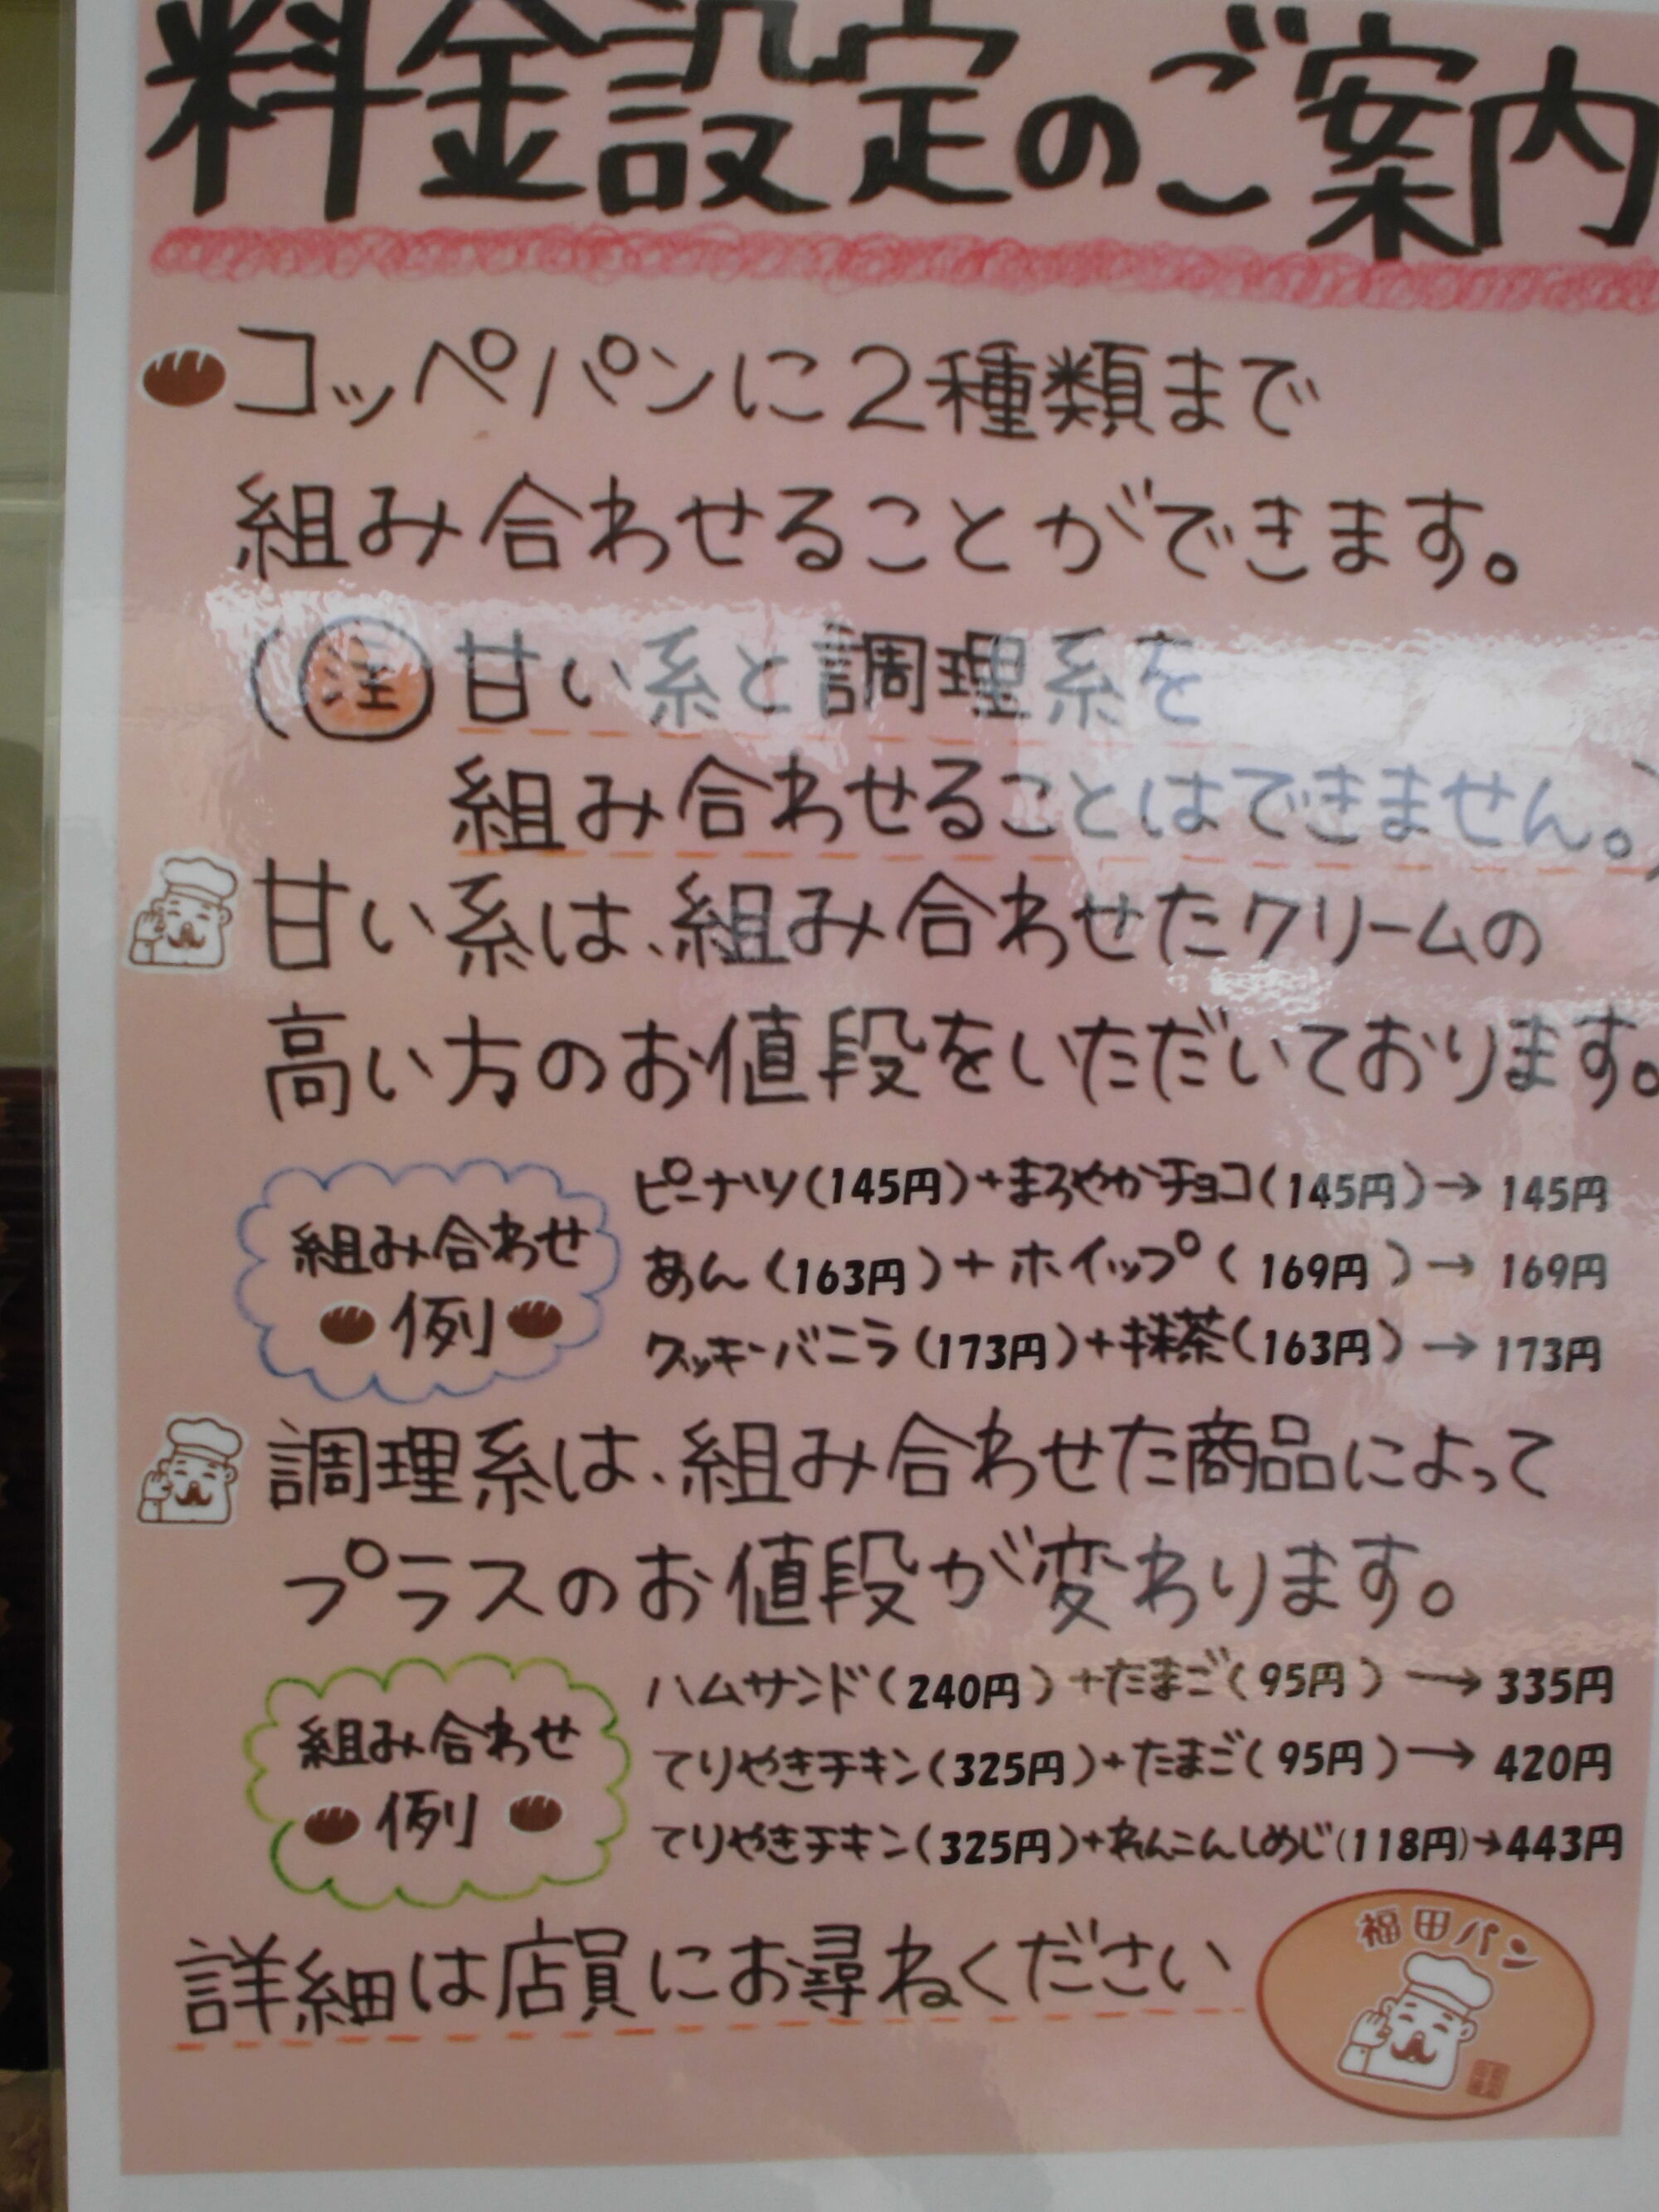 料金設定のご案内
コッペパンに2種類まで
組み合わせることができます。
(注 甘い系と調理系を
組み合わせることはできません。)
甘い系は、組み合わせたクリームの
高い方のお値段をいただいております。
組み合わせ
例
ピーナツ(145円)+まろやかチョコ(145円)→145円
あん(163円)+ホイップ(169円)→169円
クッキーバニラ(173円)+抹茶(163円)→173円
調理系は、組み合わせた商品によって
プラスのお値段が変わります。
組み合わせ
例
ハムサンド(240円)+たまご(95円)→335円
てりやきチキン(325円)+たまご(95円)→420円
てりやきチキン(325円)+れんこんしめじ(118円)→443円
詳細は店員にお尋ねください
福田パン